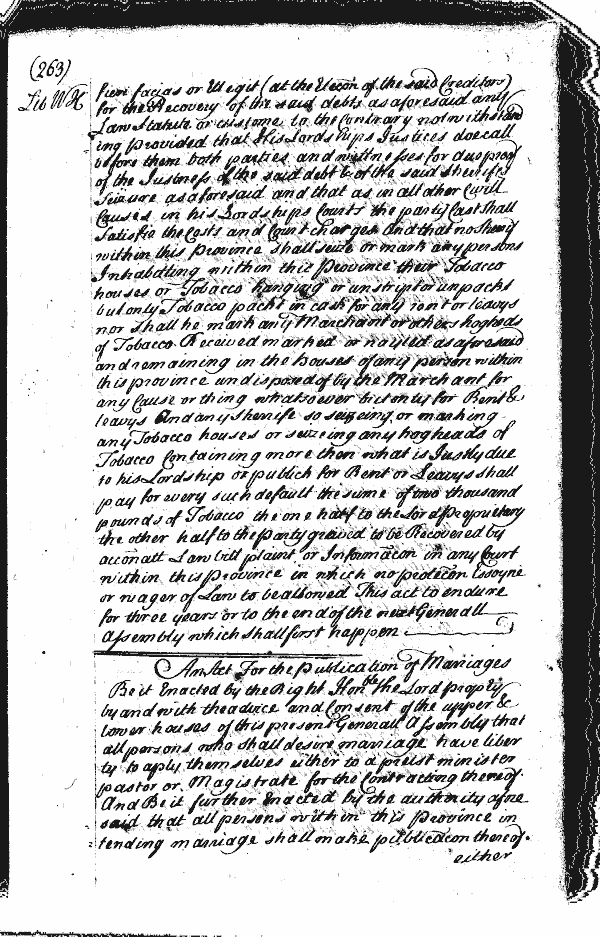 (263)
Lib W H
fieri facias or Elegit (at the Elecon of the said Creditors)
for the Recovery of the said debts as aforesaid any
Law Statute or custome to the contrary notwithstand
ing provided that His Lordships Justices doe call
before them both parties and wittnesses for due proof
of the Justness of the said debt & of the said sherifes
Seizure as aforesaid and that as in all other Civill
Causes in his Lordships Courts the party Cast shall
Satisfie the Costs and Court charges And that no Sherif
within this Province shall seize or mark any persons
Inhabating within this Province their Tobacco
houses or Tobacco hanging or unstript or unpackt
but only Tobacco packt in cask for any rent or leavys
nor shall he mark any Marchant or others hogheds
of Tobacco Received marked or nayled as aforesaid
and remaining in the houses of any person within
this province undisposed of by the Marchant for
any Cause or thing whatsoever but only for Rent &
leavys And any Sherrife so seizeing or marking
any Tobacco houses or seizeing any hogheads of
Tobacco Containing more then what is Justly due
to his Lordship or publick for Rent or Leavys shall
pay for every such default the sume of two thousand
pounds of Tobacco the one half to the Lord Proprietary
the other half to the party greived to be Recovered by
accon att Law bill plaint or Informacon in any Court
within this Province in which no protecon Essoyne
or wager of Law to be allowed This act to endure
for three years or to the end of the next Generall
Assembly which shall first happen
An Act For the Publication of Marriages
Be it Enacted by the Right Honble the Lord propty
by and with the advice and Consent of the upper &
Lower houses of this present Generall Assembly that
all persons who shall desire marriage have liber
ty to aply themselves either to a preist minister
pastor or Magistrate for the Contracting thereof
And Be it further Enacted by the authority afore
said that all persons within this Province in
tending marriage shall make publicacon thereof
either